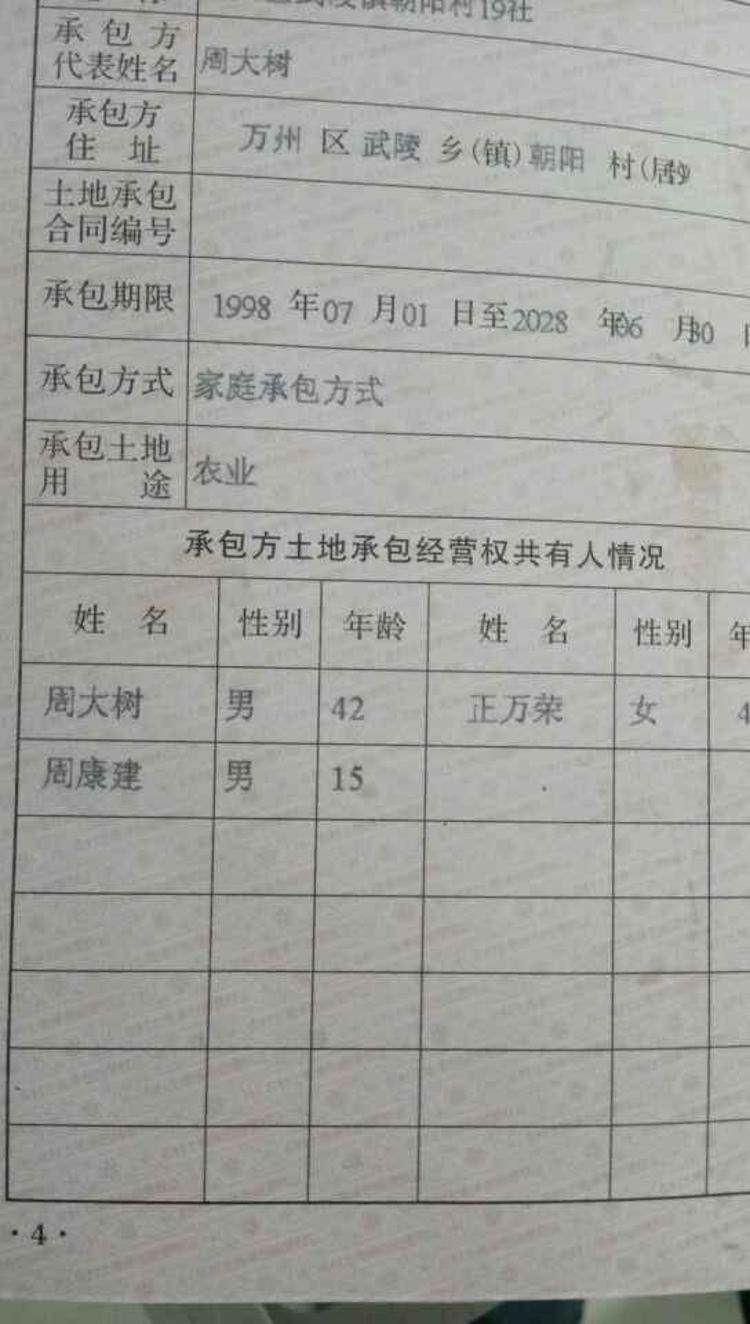 武陵镇朝阳村19社
承包方
代表姓名
周大树
承包方
住 址
万州 区 武陵 乡(镇)朝阳 村(居)
土地承包
合同编号
承包期限
1998 年07 月01 日至2028 年06 月30 日
承包方式
家庭承包方式
承包土地
用 途
农业
承包方土地承包经营权共有人情况
姓 名 性别 年龄 姓 名 性别 年
周大树 男 42 正万荣 女 4
周康建 男 15
·4·